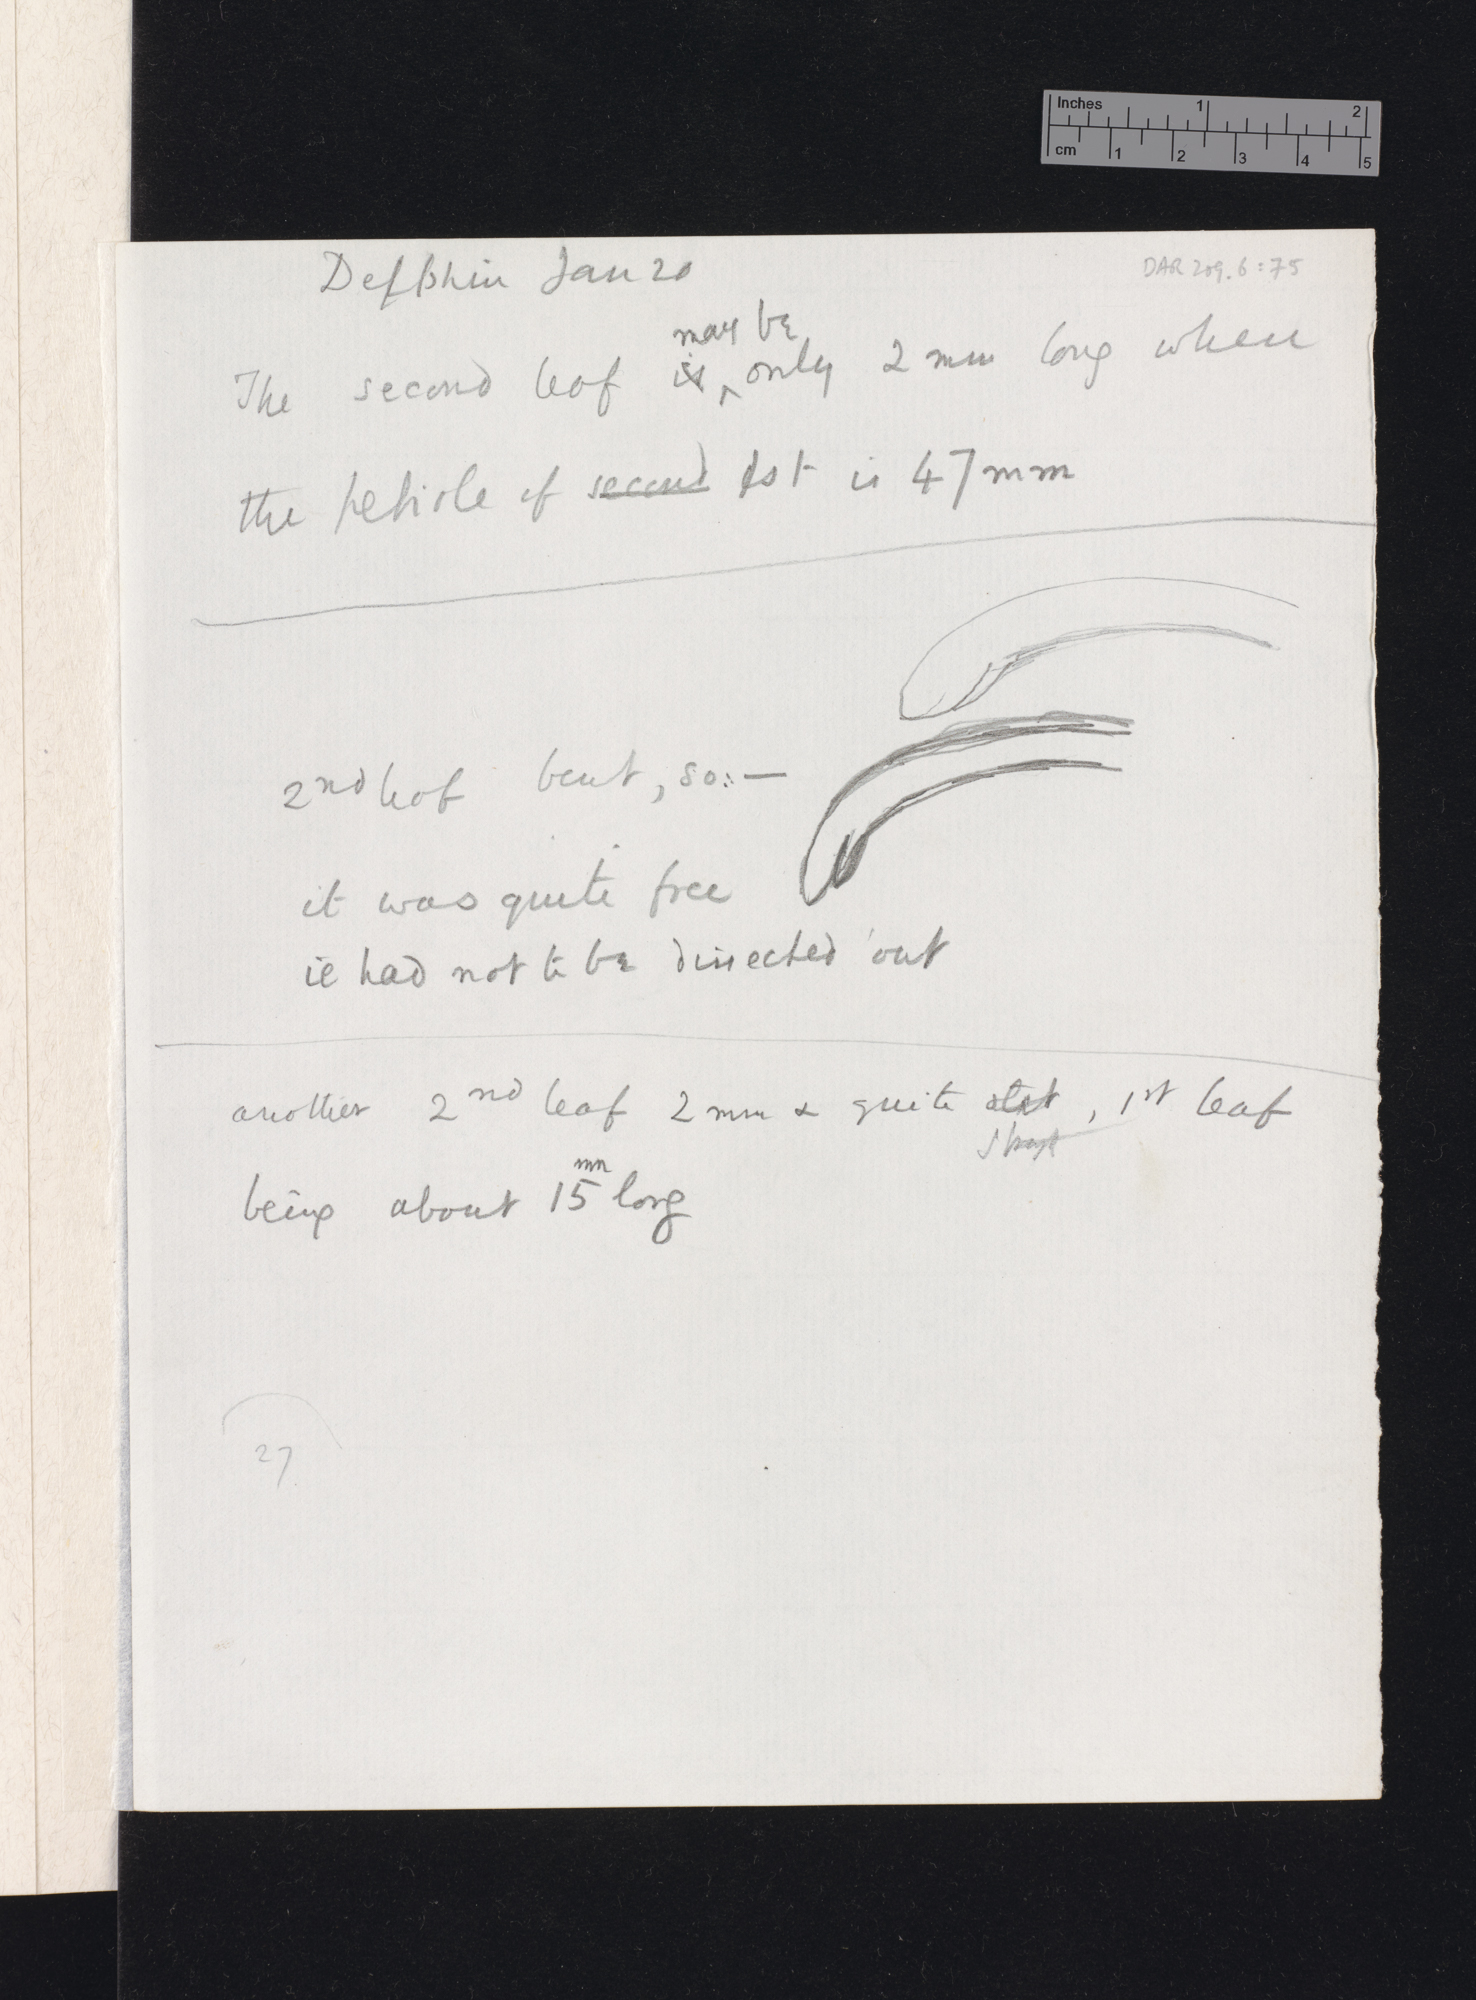 Inches 1 2
cm 1 2 3 4 5
DAR 209.6:75
Delphin Jan 20
may be
The second leaf is ^ only 2 mm long when
the petiole of second 1st is 47 mm
2nd leaf bent, so:—
it was quite free
ie had not to be dissected out
another 2nd leaf 2 mm & quite , 1st leaf
mm
being about 15 long
27